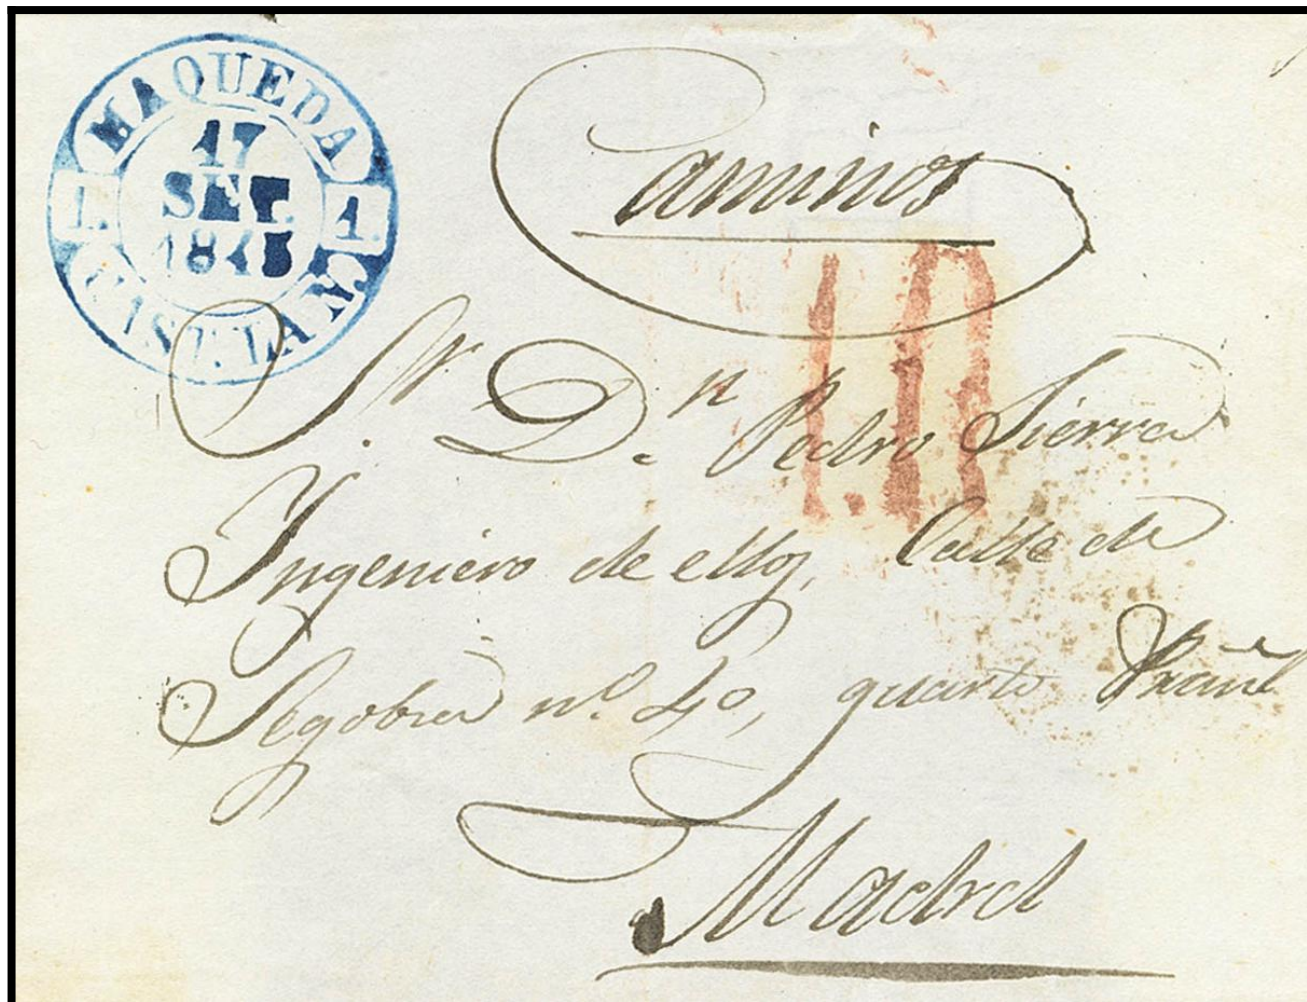 MAQUEDA
17
SET.
1845
1. 1.
CAST. LA N.
Caminos
Sr. Dn. Pedro Sierra
Ingeniero de ellos, Calle de
Segobia nº 40, quarto
Madrid